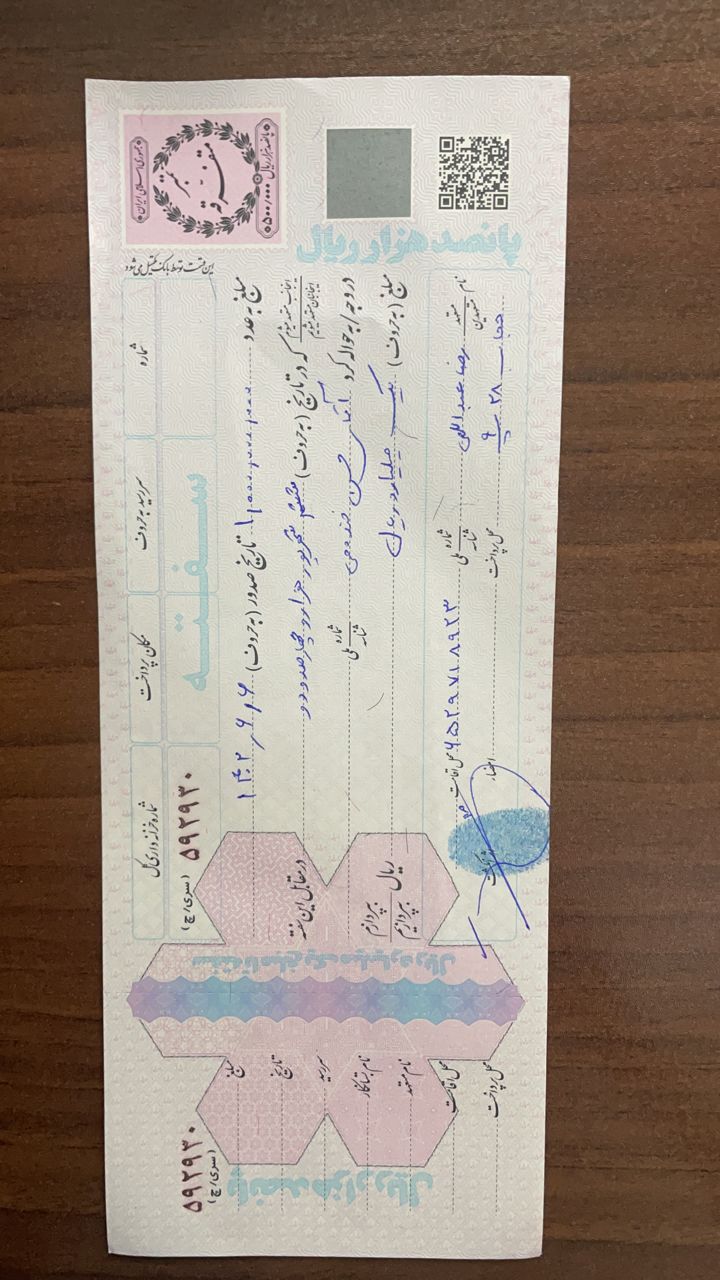 جمهوری اسلامی ایران
تمبر
متفرقه
پانصد هزار ریال ۵۰۰/۰۰۰
شماره
سررسید به حروف
مکان پرداخت
شماره خزانه داری کل
سفته
۵۹۲۹۳۰ (سری/ چ)
مبلغ به عدد ۱,۰۰۰,۰۰۰,۰۰۰ تاریخ صدور (به حروف) ۱۴۰۲/۶/۶
اینجانب متعهد میشوم
اینجانبان متعهد میشویم
که در تاریخ (به حروف) ششم شهریور هزار و چهارصد و دو در مقابل این سفته
در وجه/به حواله کرد آقای حسن شماره ملی شناسه
مبلغ (به حروف) یک میلیارد ریال ریال بپردازم بپردازیم
نام متعهد متعهدین رضا عبداللهی شماره ملی شناسه ۶۵۲۹۷۱۸۹۲۳ محل اقامت
حجاب ۲۸ پ ۹ محل پرداخت امضاء اثر انگشت
پانصد هزار ریال
سفته تا مبلغ یک میلیارد ریال
۵۹۲۹۳۰
(سری/ چ)
مبلغ
تاریخ
سررسید
نام بستانکار
نام متعهد
محل اقامت
محل پرداخت
پانصد هزار ریال